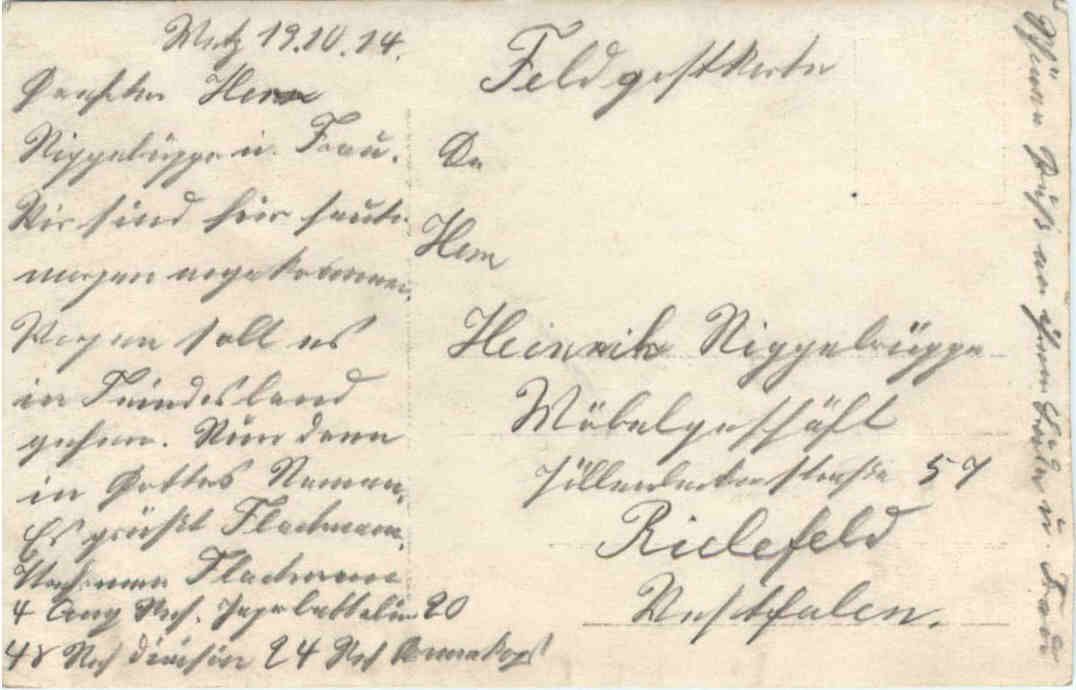 Metz 19.10.14.
Geehrter Herr
Niggebrügge u. Frau.
Wir sind hier heute
morgen angekommen.
Morgen soll es
in Feindesland
gehen. Nun denn
in Gottes Namen.
Es grüßt Flachmann.
Flachmann
4 Res. Jägerbattalion 20
48 Res division 24 Res Armeekops
Feldpostkarte
An
Herrn
Heinrich Niggebrügge
Möbelgeschäft
Jöllenbeckerstraße 57
Bielefeld
Westfalen.
Gruß an Ihren u. Frau